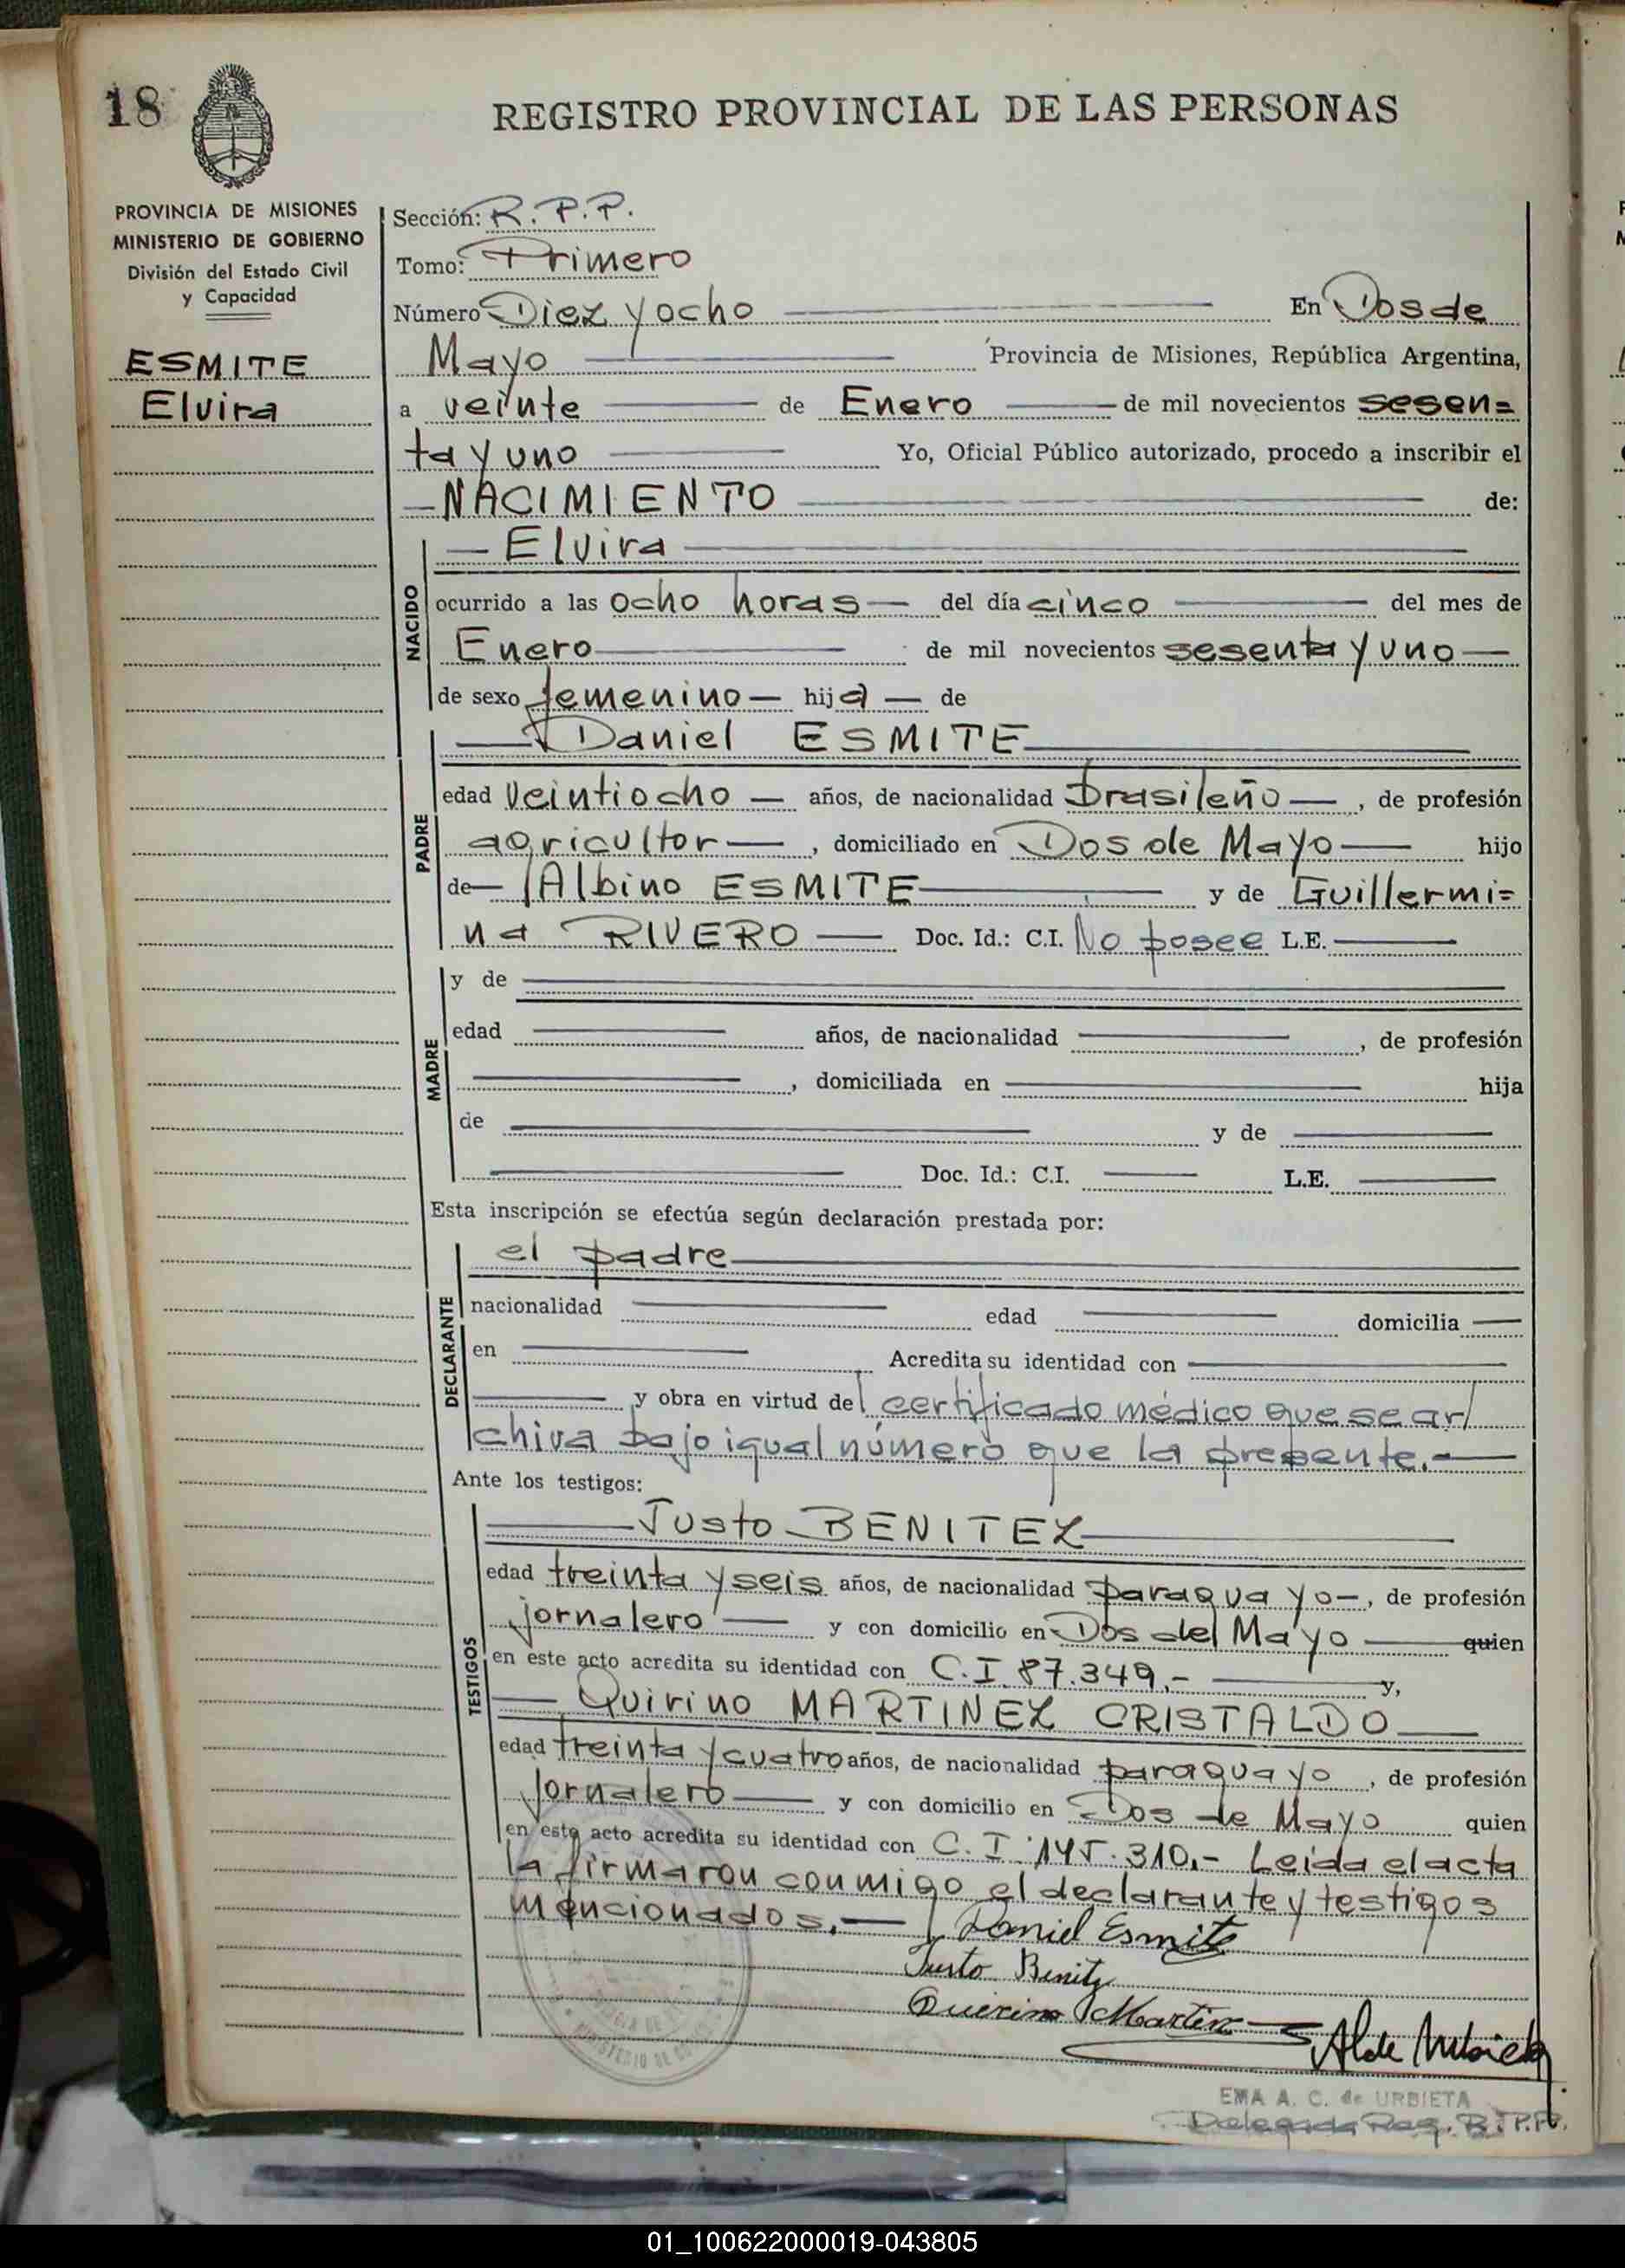 18
REGISTRO PROVINCIAL DE LAS PERSONAS
PROVINCIA DE MISIONES
MINISTERIO DE GOBIERNO
División del Estado Civil
y Capacidad
ESMITE
Elvira
Sección: R. P. P.
Tomo: Primero
Número Diez y ocho En Dos de
Mayo Provincia de Misiones, República Argentina,
a veinte de Enero de mil novecientos sesen=
ta y uno Yo, Oficial Público autorizado, procedo a inscribir el
NACIMIENTO de:
NACIDO
Elvira
ocurrido a las ocho horas del día cinco del mes de
Enero de mil novecientos sesenta y uno
de sexo femenino hija de
PADRE
Daniel ESMITE
edad veintiocho años, de nacionalidad brasileño, de profesión
agricultor, domiciliado en Dos de Mayo hijo
de Albino ESMITE y de Guillermi=
na RIVERO Doc. Id.: C.I. No posee L.E.
MADRE
y de
edad años, de nacionalidad , de profesión
, domiciliada en hija
de y de
Doc. Id.: C.I. L.E.
Esta inscripción se efectúa según declaración prestada por:
DECLARANTE
el padre
nacionalidad edad domicilia
en Acredita su identidad con
y obra en virtud del certificado médico que se ar/
chiva bajo igual número que la presente.-
Ante los testigos:
TESTIGOS
Justo BENITEZ
edad treinta y seis años, de nacionalidad paraguayo-, de profesión
jornalero y con domicilio en Dos del Mayo quien
en este acto acredita su identidad con C.I. 87.349.- y,
Quirino MARTINEZ CRISTALDO
edad treinta y cuatro años, de nacionalidad paraguayo, de profesión
jornalero y con domicilio en Dos de Mayo quien
en este acto acredita su identidad con C. I. 145.310.- Leida el acta
la firmaron conmigo el declarante y testigos
mencionados.-
Daniel Esmite
Justo Benitz
Quirino Martinz
EMA A. C. de URBIETA
Delegada Reg. R.P.P.
01_100622000019-043805